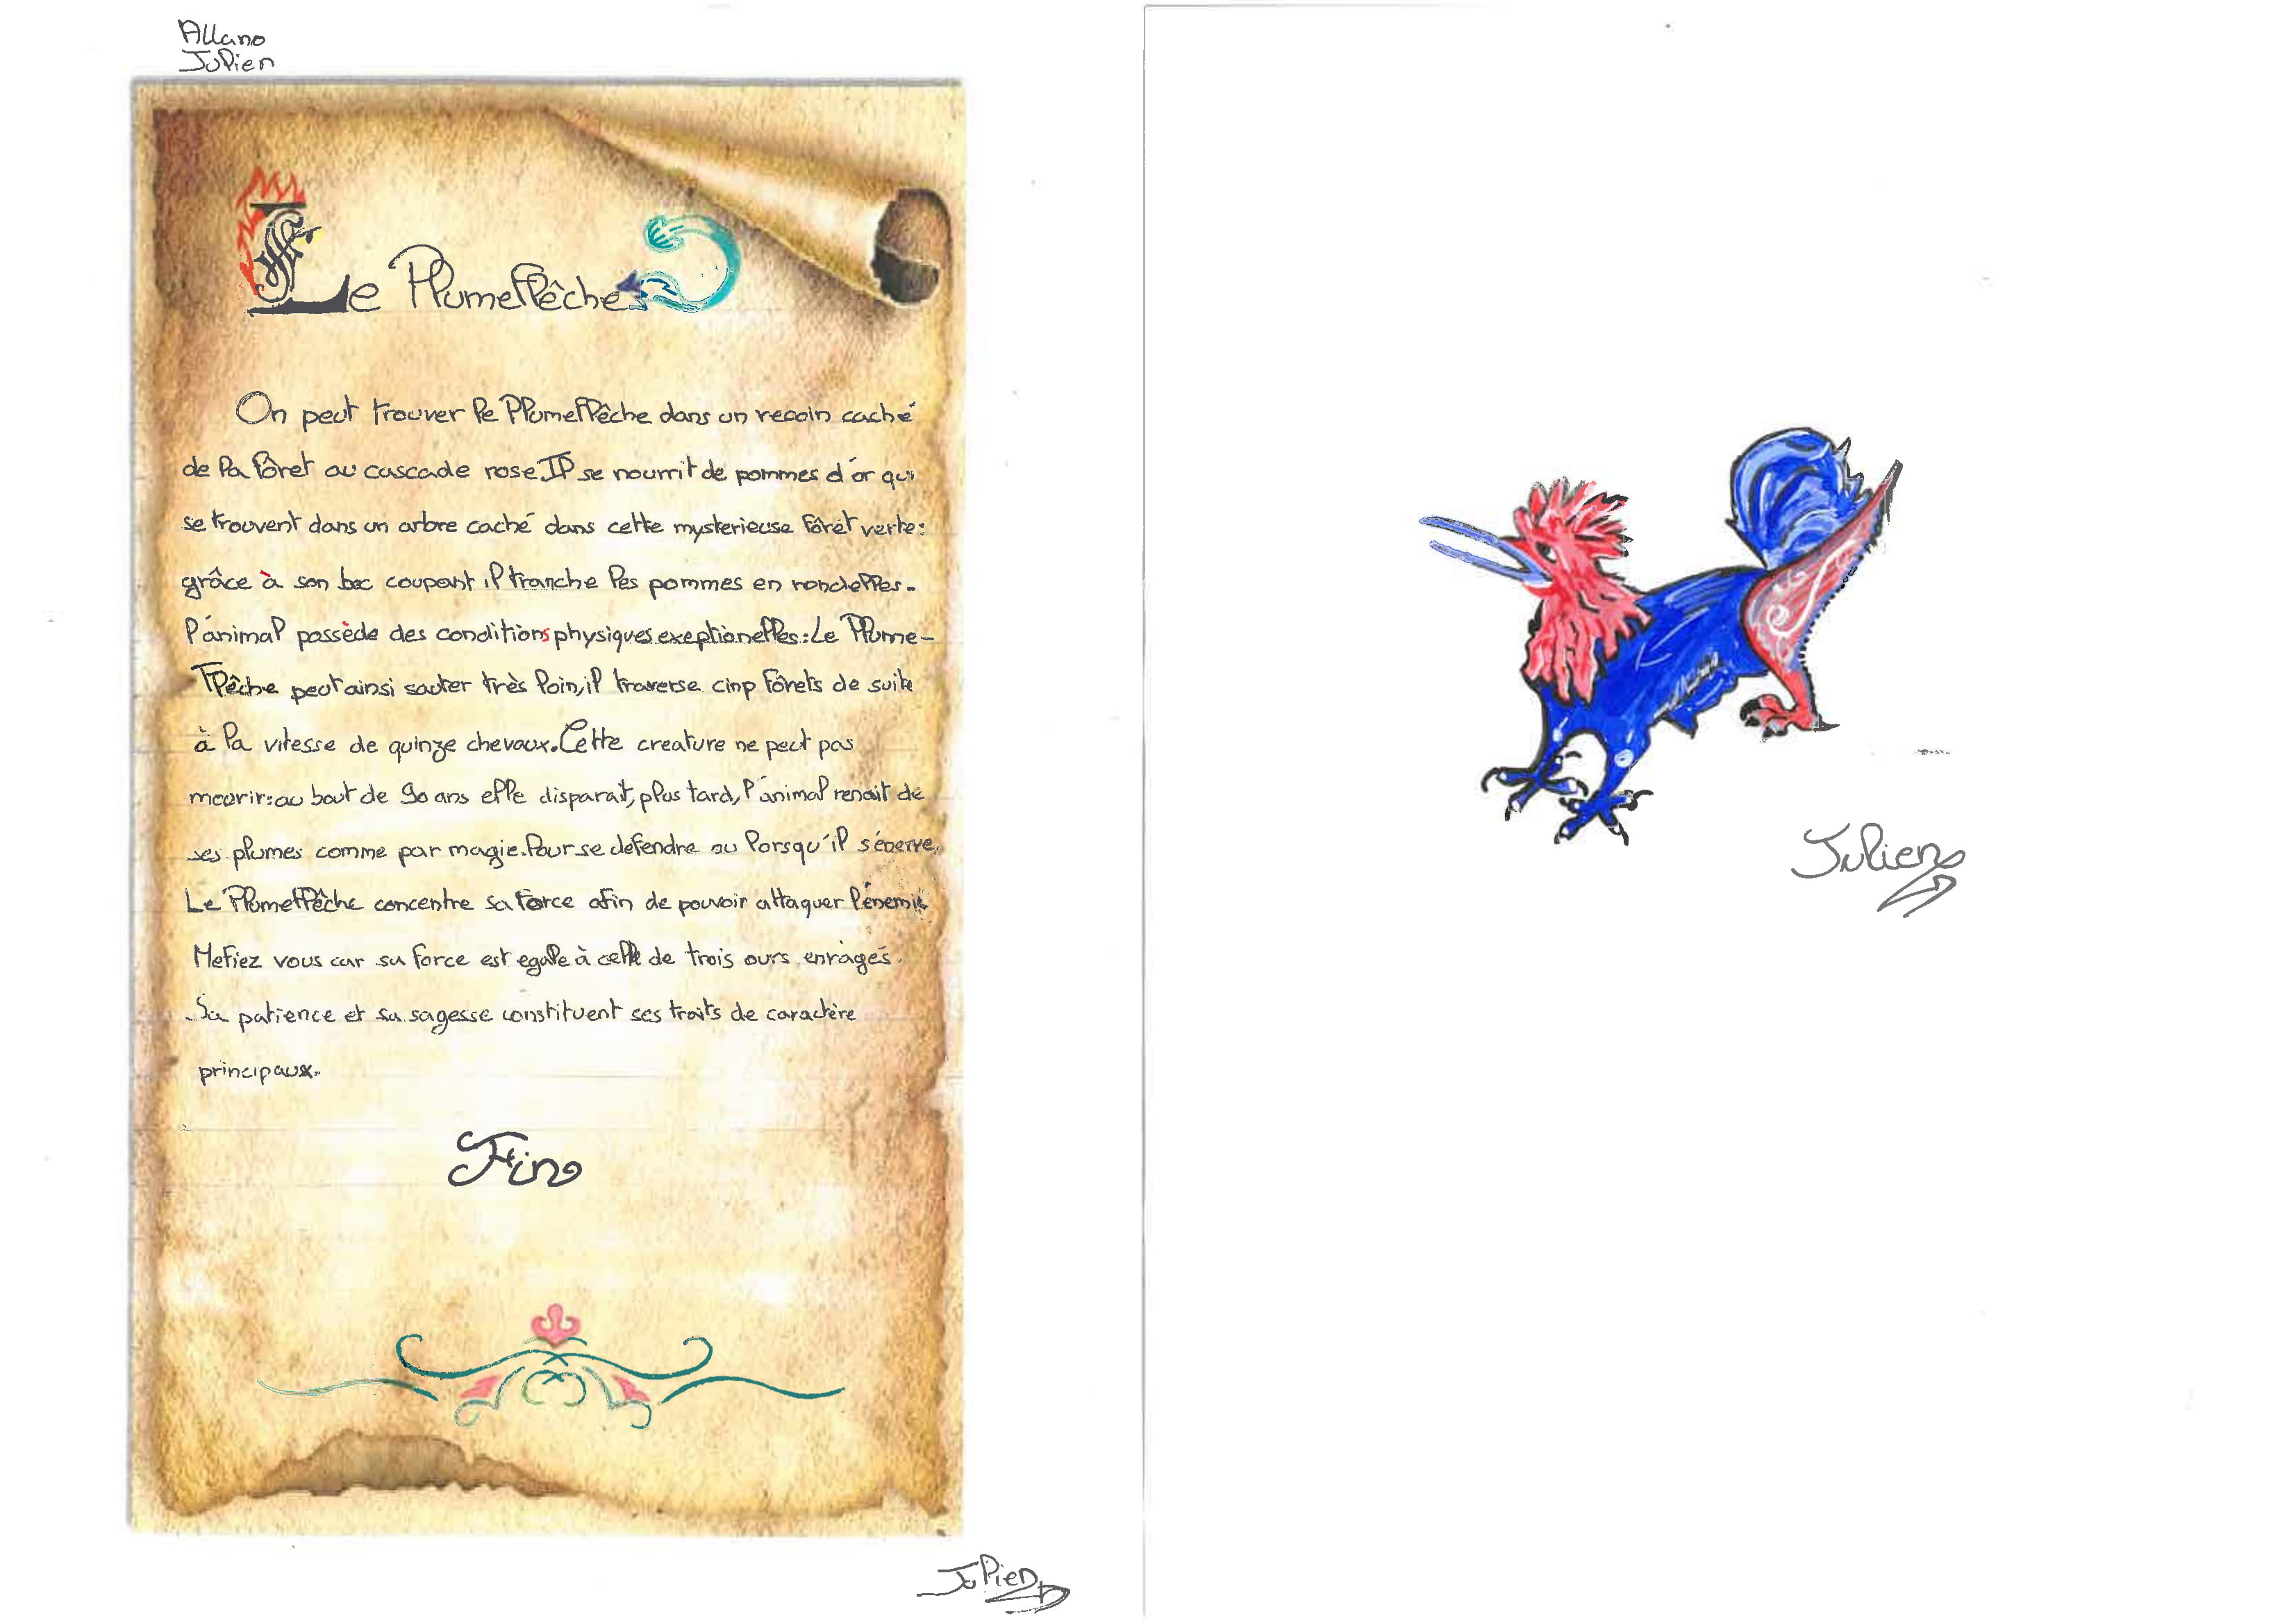 Allano
Julien
Le Plumeflêche
On peut trouver le Plumeflêche dans un recoin caché
de la fôret au cascade rose. Il se nourrit de pommes d'or qui
se trouvent dans un arbre caché dans cette mysterieuse fôret verte:
grâce à son bec coupant il tranche les pommes en rondelles.
l'animal possède des conditions physiques exeptionelles: Le Plume-
flêche peut ainsi sauter très loin, il traverse cinq fôrets de suite
à la vitesse de quinze chevaux. Cette creature ne peut pas
mourir: au bout de 90 ans elle disparait, plus tard, l'animal renait de
ses plumes comme par magie. Pour se defendre ou lorsqu'il s'énerve,
Le Plumeflêche concentre sa force afin de pouvoir attaquer l'énemie
Mefiez vous car sa force est egale à celle de trois ours enragés.
Sa patience et sa sagesse constituent ses traits de caractère
principaux.
Fin
Julien
Julien